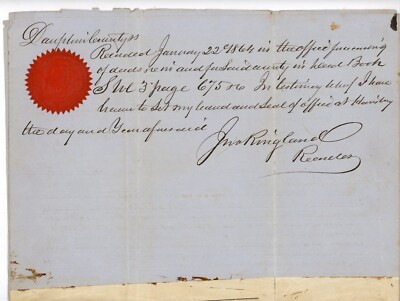 Dauphin County ss
Recorded January 22d 1864 in the office for recording
of deeds in and for Said County in deed Book
"3" page 675 &c In testimony whereof I have
hereunto Set my hand and Seal of office at
the day and Year aforesaid
Jno Ringland
Recorder